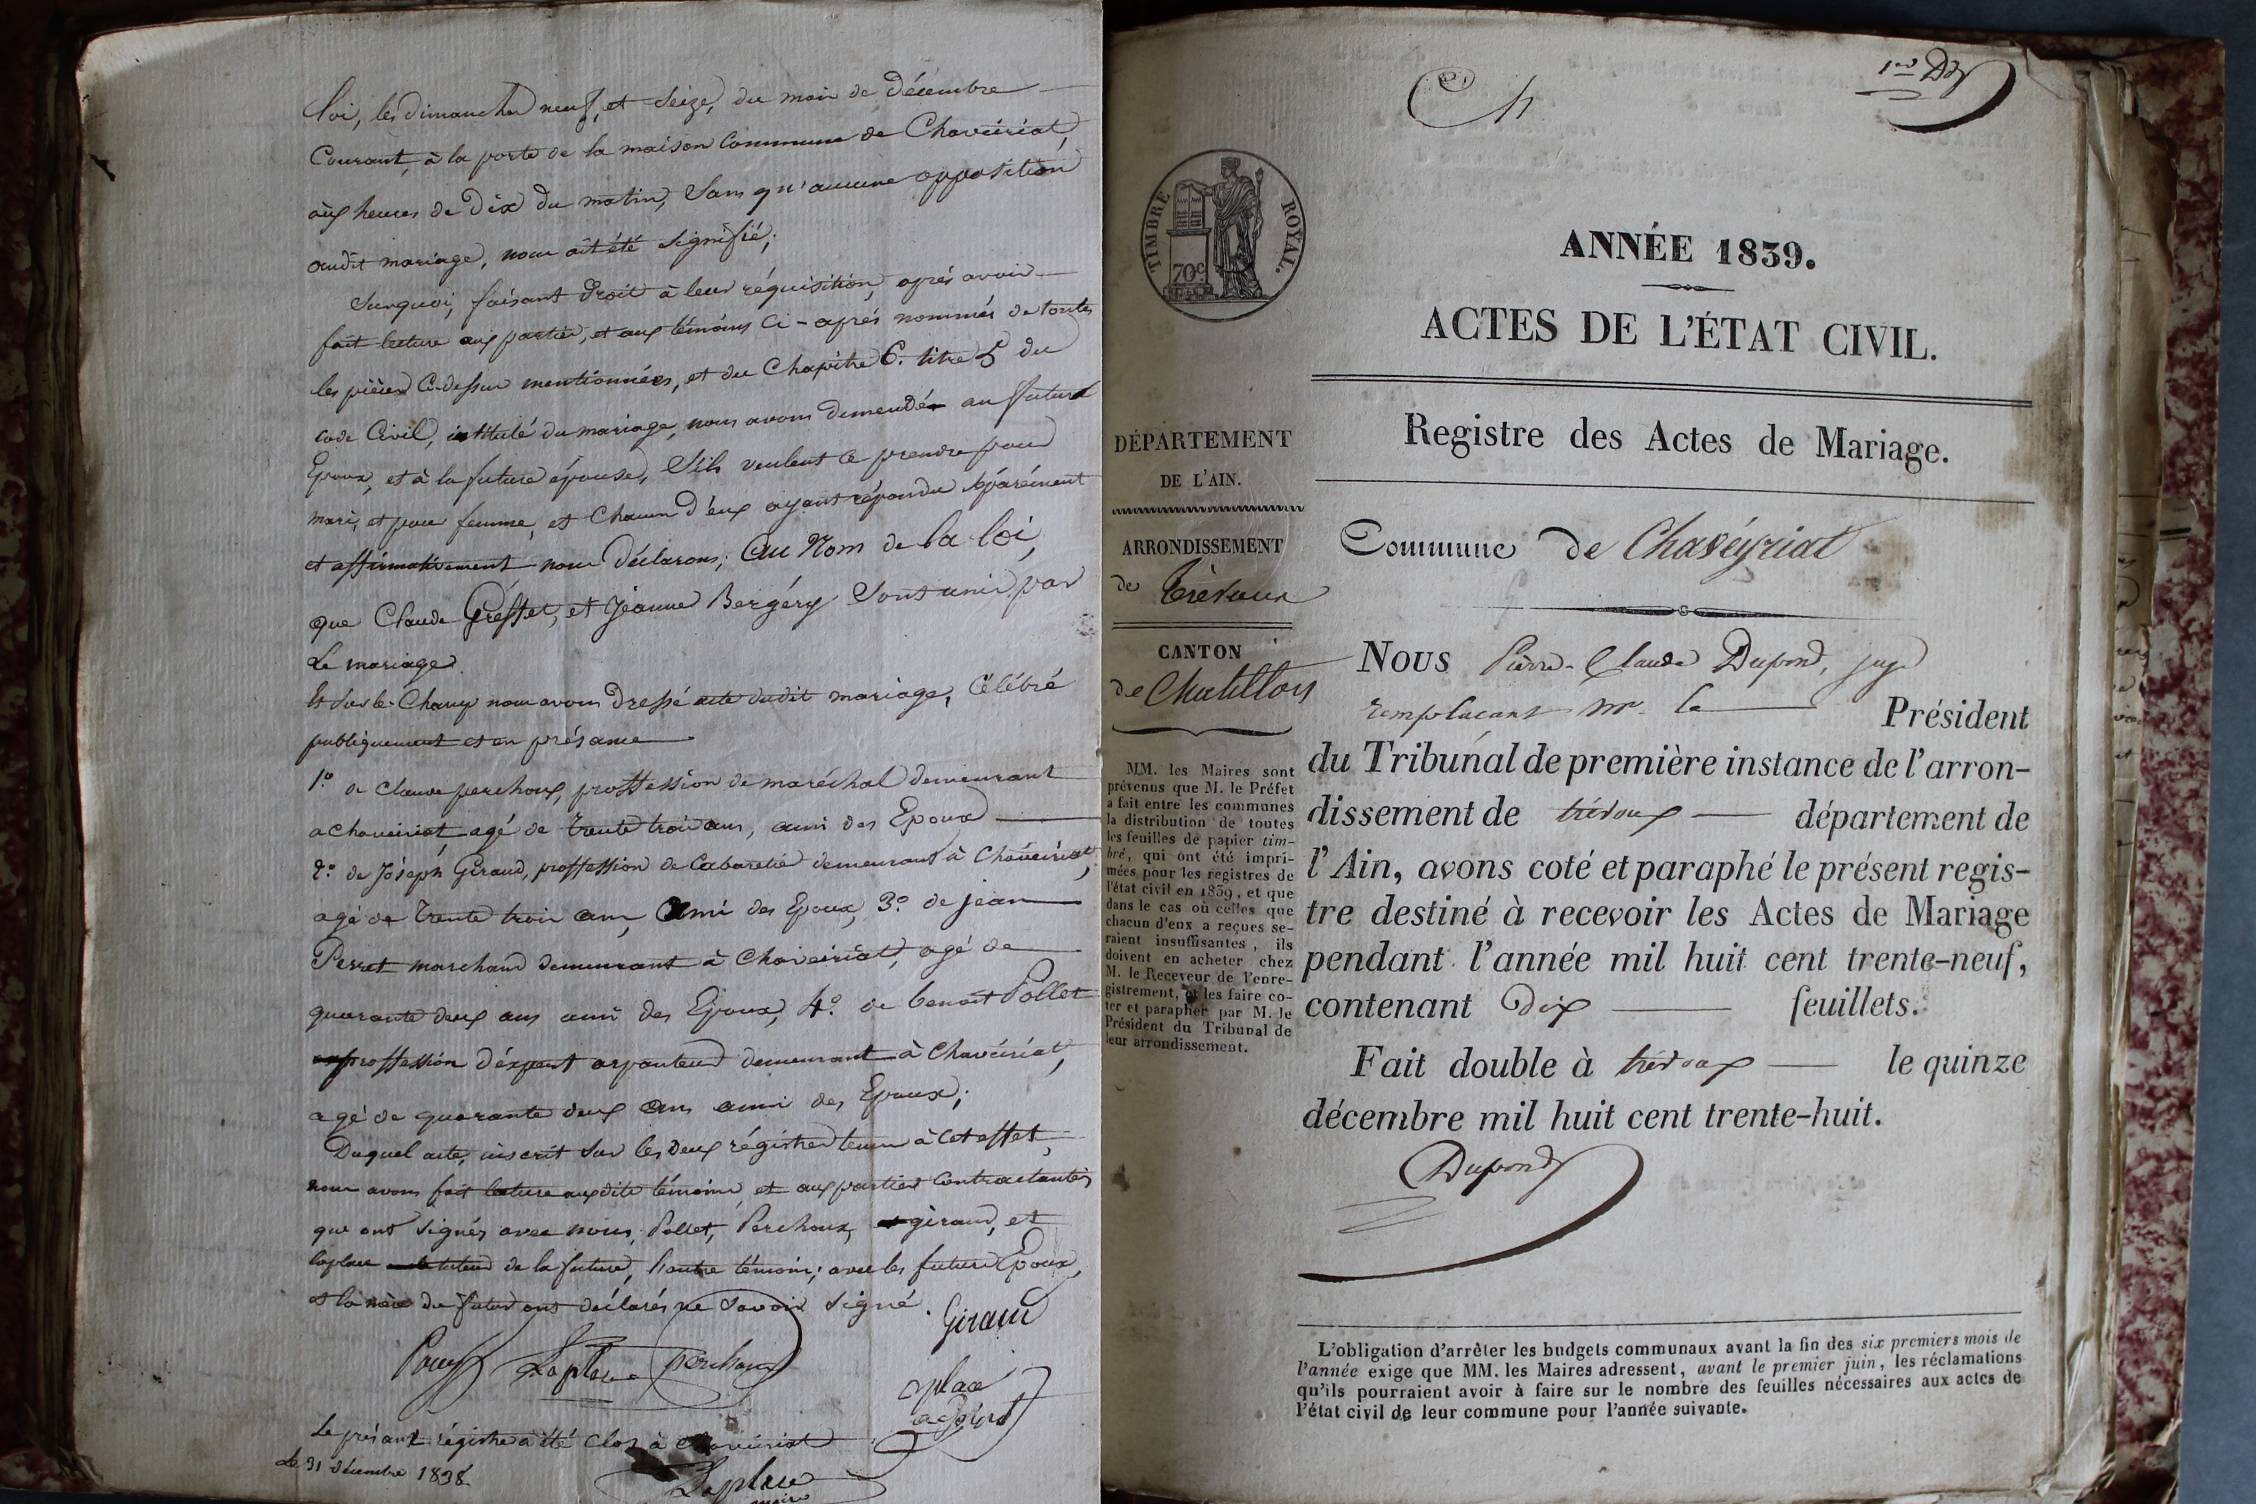 loi, les dimanches neuf, et seize, du mois de décembre
Courant, à la porte de la maison commune de Chaveiriat,
aux heures de dix du matin, sans qu'aucune opposition
audit mariage, nous ait été signifié;
Surquoi, faisant droit à leur réquisition, après avoir
fait lecture aux parties, et aux témoins ci-après nommés de toutes
les pièces Ci-dessus mentionnées, et du Chapitre 6. titre 5 du
code Civil, intitulé du mariage, nous avons demendé au futur
Epoux, et à la future épouse, s'ils veulent se prendre pour
mari, et pour femme, et chacun d'eux ayant répondu séparément
et affirmativement nous déclarons; Au Nom de la loi,
que Claude Greffet, et Jéanne Bergéry sont unis par
Le mariage.
Et sur le Champ nous avons dressé acte dudit mariage, Célébré
publiquement et en présance
1.º de Claude perchoux, proffession de maréchal demeurant
a chaveiriat agé de trente trois ans, ami des Epoux
2.º de Jóseph Giraud, proffession de Cabaretié demeurant à Chaveiriat,
agé de trente trois ans, Ami des Epoux, 3.º de jean
Perret marchand demeurant à Chaveiriat, agé de
quarante deux ans ami des Epoux, 4.º de benoit Pollet
proffession d'éxpert arpanteur demeurant à Chaveiriat,
agé de quarante deux Ans ami des Epoux;
Duquel acte, inscrit sur les deux régistres tenus à cet effet,
nous avons fait lecture auxdits témoins et aux parties Contractantes
qui ont signés avec nous, Pollet, Perchoux, giraud, et
laplace tuteur de la future, l'autre témoin; avec les futurs Epoux,
et la mère du futur ont déclarés ne savoir signé.
Giraud
Laplace perchoux
laplace
adjoint
Le présant régistre a été clos à chaveiriat
Le 31 décembre 1838
Laplace
maire
1er Dd
TIMBRE ROYAL.
70c
ANNÉE 1839.
ACTES DE L'ÉTAT CIVIL.
Registre des Actes de Mariage.
DÉPARTEMENT
DE L'AIN.
ARRONDISSEMENT
de Trévoux
CANTON
de Chatillon
MM. les Maires sont
prévenus que M. le Préfet
a fait entre les communes
la distribution de toutes
les feuilles de papier tim-
bré, qui ont été impri-
mées pour les registres de
l'état civil en 1839, et que
dans le cas où celles que
chacun d'eux a reçues se-
raient insuffisantes, ils
doivent en acheter chez
M. le Receveur de l'enre-
gistrement, et les faire co-
ter et parapher par M. le
Président du Tribunal de
leur arrondissement.
Commune de Chavéyriat
NOUS Pierre-Claude Dupond, juge
remplacant mr. le Président
du Tribunal de première instance de l'arron-
dissement de trévoux département de
l'Ain, avons coté et paraphé le présent regis-
tre destiné à recevoir les Actes de Mariage
pendant l'année mil huit cent trente-neuf,
contenant dix feuillets.
Fait double à trévoux le quinze
décembre mil huit cent trente-huit.
Dupond
L'obligation d'arrêter les budgets communaux avant la fin des six premiers mois de
l'année exige que MM. les Maires adressent, avant le premier juin, les réclamations
qu'ils pourraient avoir à faire sur le nombre des feuilles nécessaires aux actes de
l'état civil de leur commune pour l'année suivante.